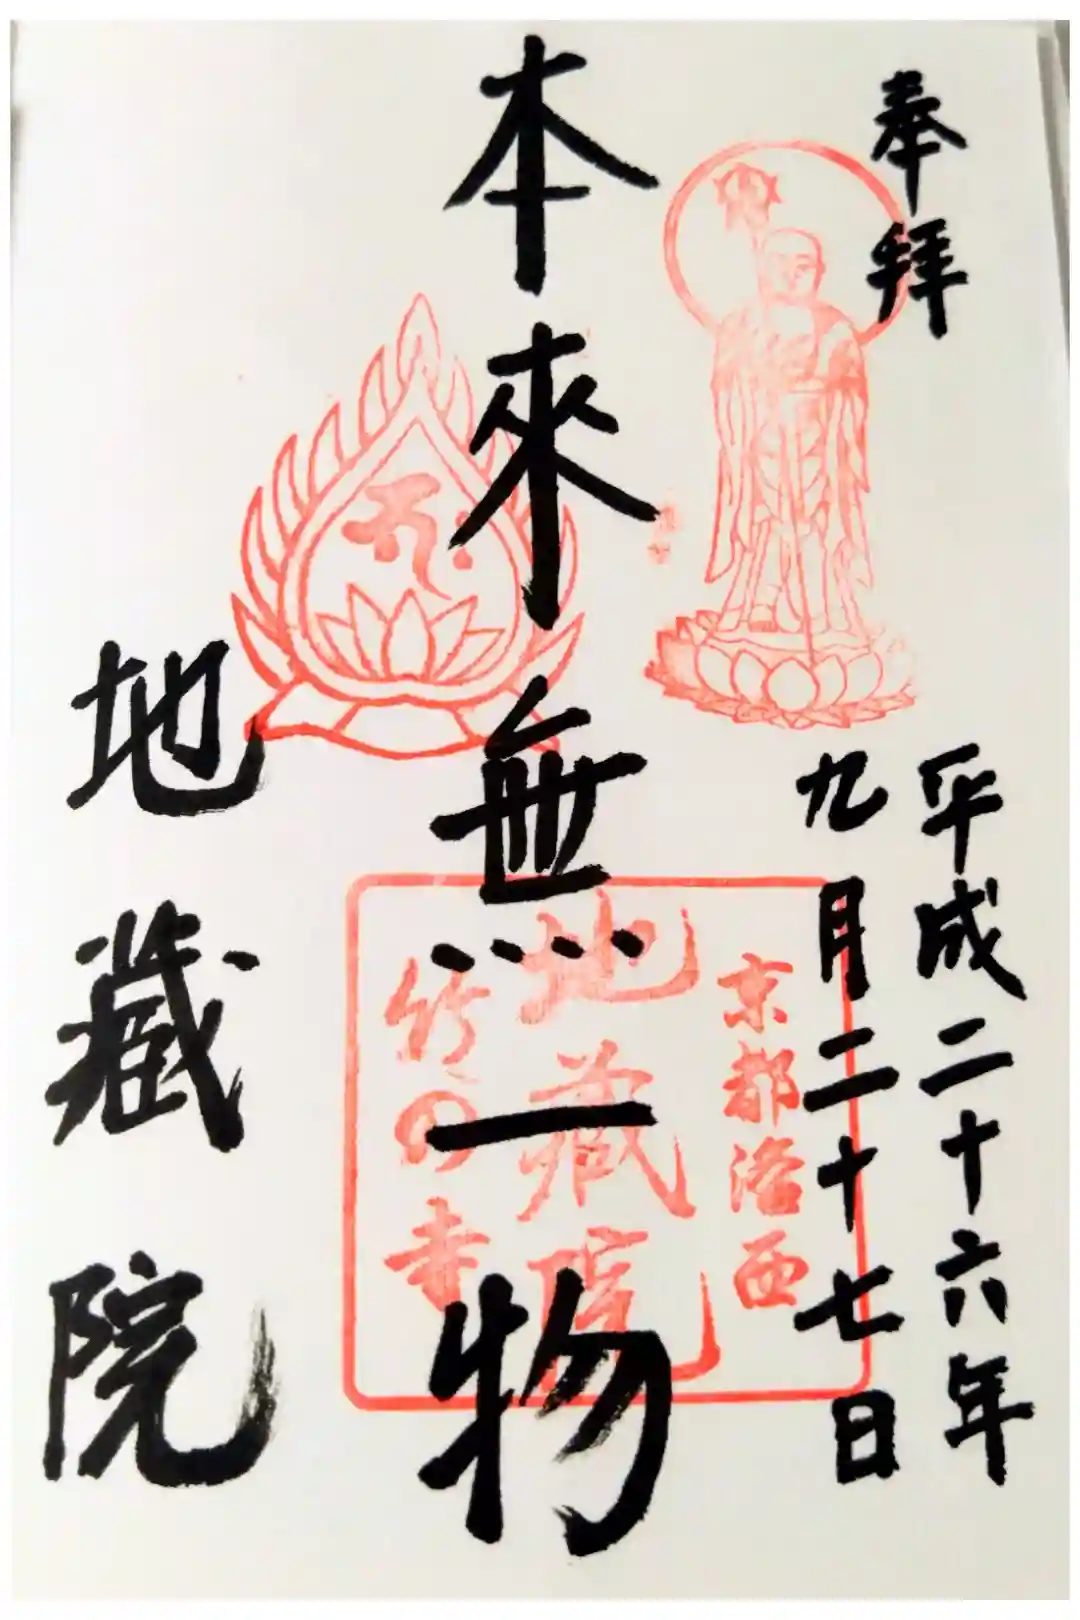 奉拜
平成二十六年
九月二十七日
本來無一物
地藏院
京都洛西
地蔵院
竹の寺